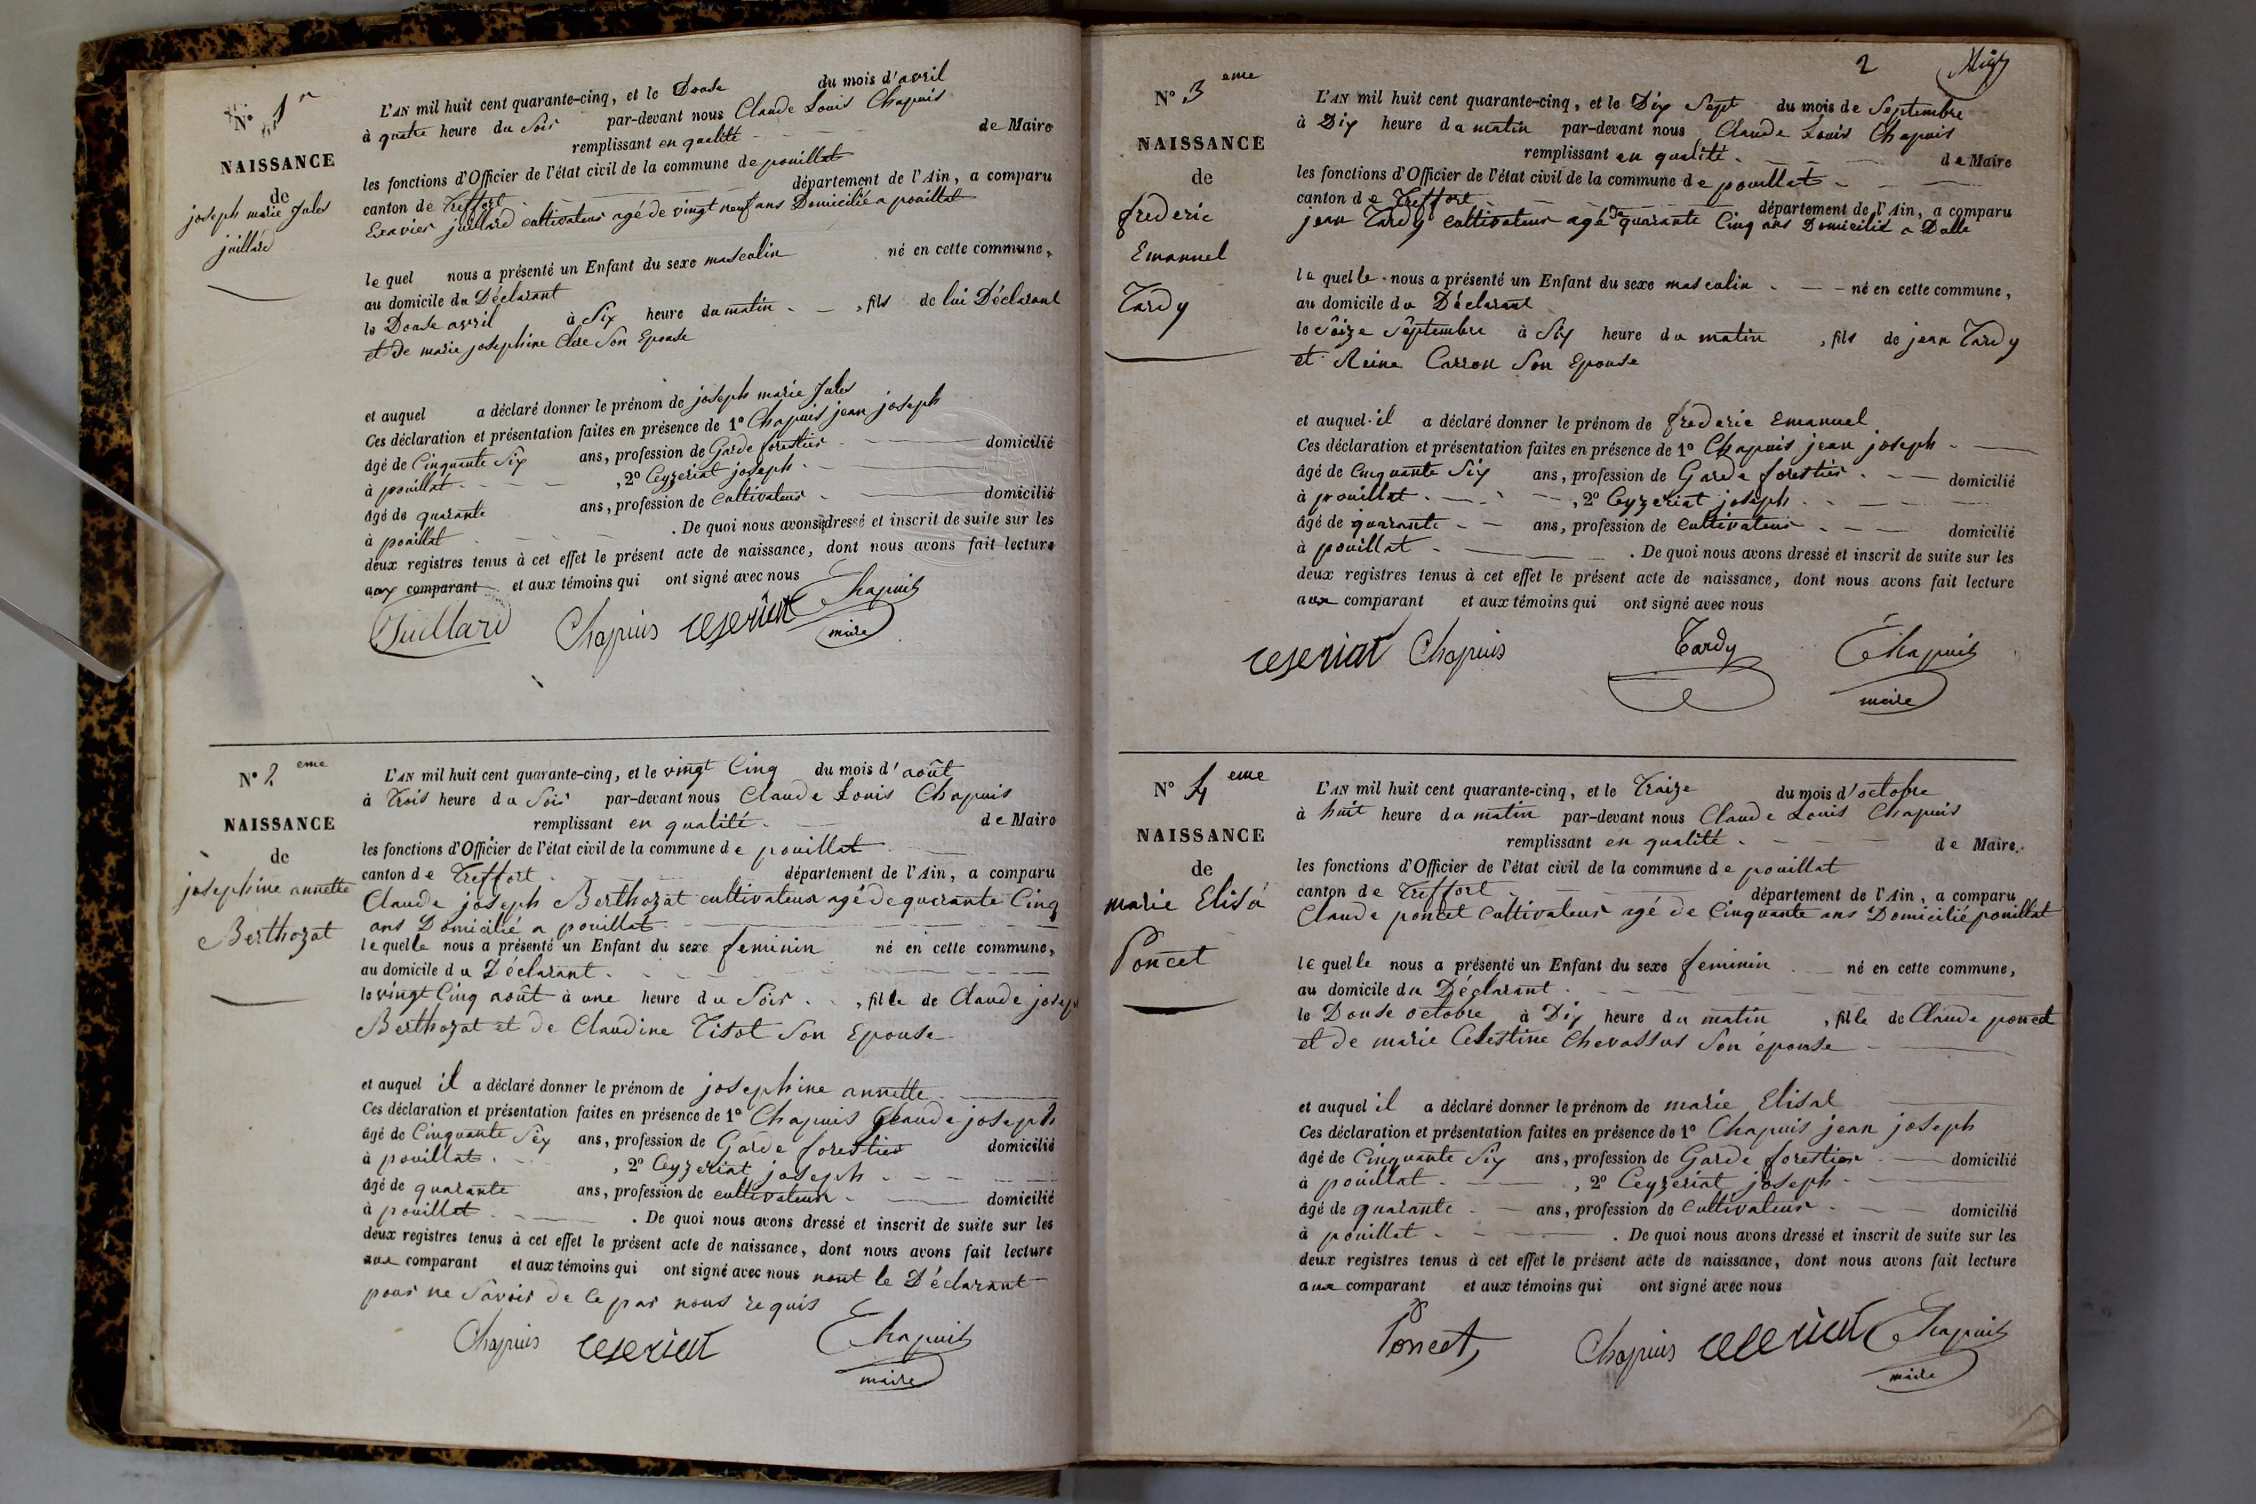 N° 1er
NAISSANCE
de
joseph marie Jules
juillard
L'AN mil huit cent quarante-cinq, et le Douse du mois d'avril
à quatre heure du Soir par-devant nous Claude Louis Chapuis
remplissant en qualité de Maire
les fonctions d'Officier de l'état civil de la commune de pouillat
canton de Treffort département de l'Ain, a comparu
Exavier juillard cultivateur agé de vingt neuf ans Domicilié a pouillat
le quel nous a présenté un Enfant du sexe masculin né en cette commune,
au domicile du Déclarant
le Douse avril à Six heure du matin, fils de lui Déclarant
et de marie josephine Clere Son Epouse
et auquel a déclaré donner le prénom de joseph marie Jules
Ces déclaration et présentation faites en présence de 1° Chapuis jean joseph
âgé de Cinquante Six ans, profession de Garde forestier domicilié
à pouillat, 2° Ceyzeriat joseph
âgé de quarante ans, profession de Cultivateur domicilié
à pouillat. De quoi nous avons dressé et inscrit de suite sur les
deux registres tenus à cet effet le présent acte de naissance, dont nous avons fait lecture
aux comparant et aux témoins qui ont signé avec nous
Juillard Chapuis ceseriat Chapuis
maire
N° 2eme
NAISSANCE
de
josephine annette
Berthozat
L'AN mil huit cent quarante-cinq, et le vingt Cinq du mois d'août
à Trois heure du Soir par-devant nous Claude Louis Chapuis
remplissant en qualité de Maire
les fonctions d'Officier de l'état civil de la commune de pouillat
canton de Treffort département de l'Ain, a comparu
Claude joseph Berthozat cultivateur agé de quarante Cinq
ans Domicilié a pouillat
le quelle nous a présenté un Enfant du sexe feminin né en cette commune,
au domicile du Déclarant
le vingt Cinq août à une heure du Soir, fille de Claude joseph
Berthozat et de Claudine Tisot Son Epouse
et auquel il a déclaré donner le prénom de josephine annette
Ces déclaration et présentation faites en présence de 1° Chapuis Claude joseph
âgé de Cinquante Six ans, profession de Garde forestier domicilié
à pouillat, 2° Ceyzeriat joseph
âgé de quarante ans, profession de cultivateur domicilié
à pouillat. De quoi nous avons dressé et inscrit de suite sur les
deux registres tenus à cet effet le présent acte de naissance, dont nous avons fait lecture
aux comparant et aux témoins qui ont signé avec nous nont le Déclarant
pour ne Savoir de Ce par nous requis
Chapuis ceseriat Chapuis
maire
2
N° 3eme
NAISSANCE
de
frederic
Emanuel
Tardy
L'AN mil huit cent quarante-cinq, et le Dix Sept du mois de Septembre
à Dix heure du matin par-devant nous Claude Louis Chapuis
remplissant en qualité de Maire
les fonctions d'Officier de l'état civil de la commune de pouillat
canton de Treffort département de l'Ain, a comparu
jean Tardy cultivateur agé de quarante Cinq ans Domicilié a Dalle
le quelle nous a présenté un Enfant du sexe masculin né en cette commune,
au domicile du Déclarant
le Sèize Séptembre à Six heure du matin, fils de jean Tardy
et Reine Carron Son Epouse
et auquel il a déclaré donner le prénom de frederic Emanuel
Ces déclaration et présentation faites en présence de 1° Chapuis jean joseph
âgé de Cinquante Six ans, profession de Garde forestiér domicilié
à pouillat, 2° Ceyzeriat joseph
âgé de quarante ans, profession de Cultivateur domicilié
à pouillat. De quoi nous avons dressé et inscrit de suite sur les
deux registres tenus à cet effet le présent acte de naissance, dont nous avons fait lecture
aux comparant et aux témoins qui ont signé avec nous
ceseriat Chapuis Tardy Chapuis
maire
N° 4eme
NAISSANCE
de
marie Elisa
Poncet
L'AN mil huit cent quarante-cinq, et le Traize du mois d'octobre
à huit heure du matin par-devant nous Claude Louis Chapuis
remplissant en qualité de Maire
les fonctions d'Officier de l'état civil de la commune de pouillat
canton de Treffort département de l'Ain, a comparu
Claude pontet Cultivateur agé de Cinquante ans Domicilié pouillat
le quelle nous a présenté un Enfant du sexe feminin né en cette commune,
au domicile du Déclarant
le Douse octobre à Dix heure du matin, fille de Claude poncet
et de marie Celestine Chevassus Son épouse
et auquel il a déclaré donner le prénom de marie Elisal
Ces déclaration et présentation faites en présence de 1° Chapuis jean joseph
âgé de Cinquante Six ans, profession de Garde forestier domicilié
à pouillat, 2° Ceyzeriat joseph
âgé de quarante ans, profession de Cultivateur domicilié
à pouillat. De quoi nous avons dressé et inscrit de suite sur les
deux registres tenus à cet effet le présent acte de naissance, dont nous avons fait lecture
aux comparant et aux témoins qui ont signé avec nous
Poncet Chapuis ceseriat Chapuis
maire